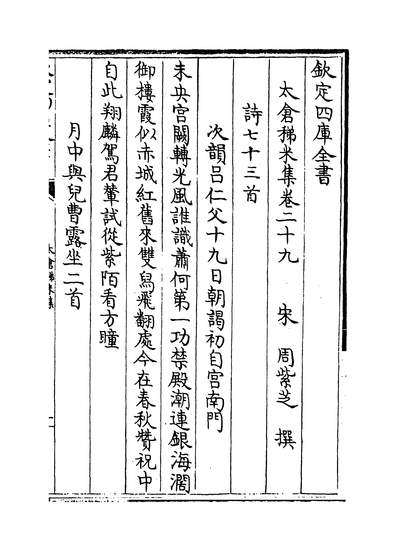 欽定四庫全書
太倉稊米集卷二十九 宋 周紫芝 撰
詩七十三首
次韻呂仁父十九日朝謁初自宫南門
未央宫闕轉光風誰識蕭何第一功禁殿潮連銀海濶
御樓霞似赤城紅舊來雙舄飛翻處今在春秋贊祝中
自此翔麟駕君輦試從紫陌看方瞳
月中與兒曹露坐二首
太倉稊米集